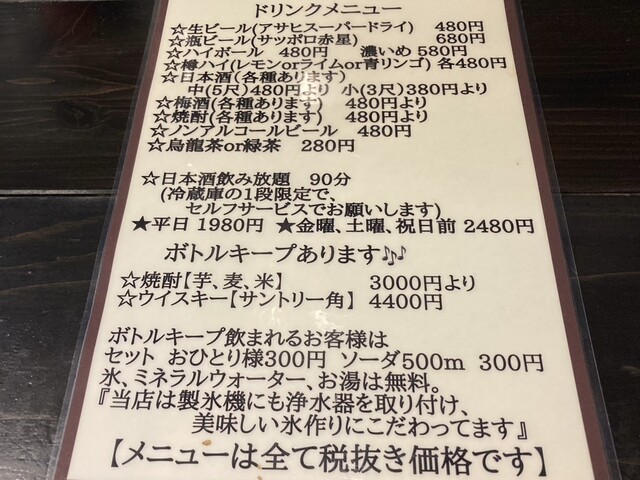 ドリンクメニュー
☆生ビール(アサヒスーパードライ) 480円
☆瓶ビール(サッポロ赤星) 680円
☆ハイボール 480円 濃いめ 580円
☆樽ハイ(レモンorライムor青リンゴ) 各480円
☆日本酒(各種あります)
中(5尺)480円より 小(3尺)380円より
☆梅酒(各種あります) 480円より
☆焼酎(各種あります) 480円より
☆ノンアルコールビール 480円
☆烏龍茶or緑茶 280円
☆日本酒飲み放題 90分
(冷蔵庫の1段限定で、
セルフサービスでお願いします)
★平日 1980円 ★金曜、土曜、祝日前 2480円
ボトルキープあります🎶
☆焼酎【芋、麦、米】 3000円より
☆ウイスキー【サントリー角】 4400円
ボトルキープ飲まれるお客様は
セット おひとり様300円 ソーダ500m 300円
氷、ミネラルウォーター、お湯は無料。
『当店は製氷機にも浄水器を取り付け、
美味しい氷作りにこだわってます』
【メニューは全て税抜き価格です】